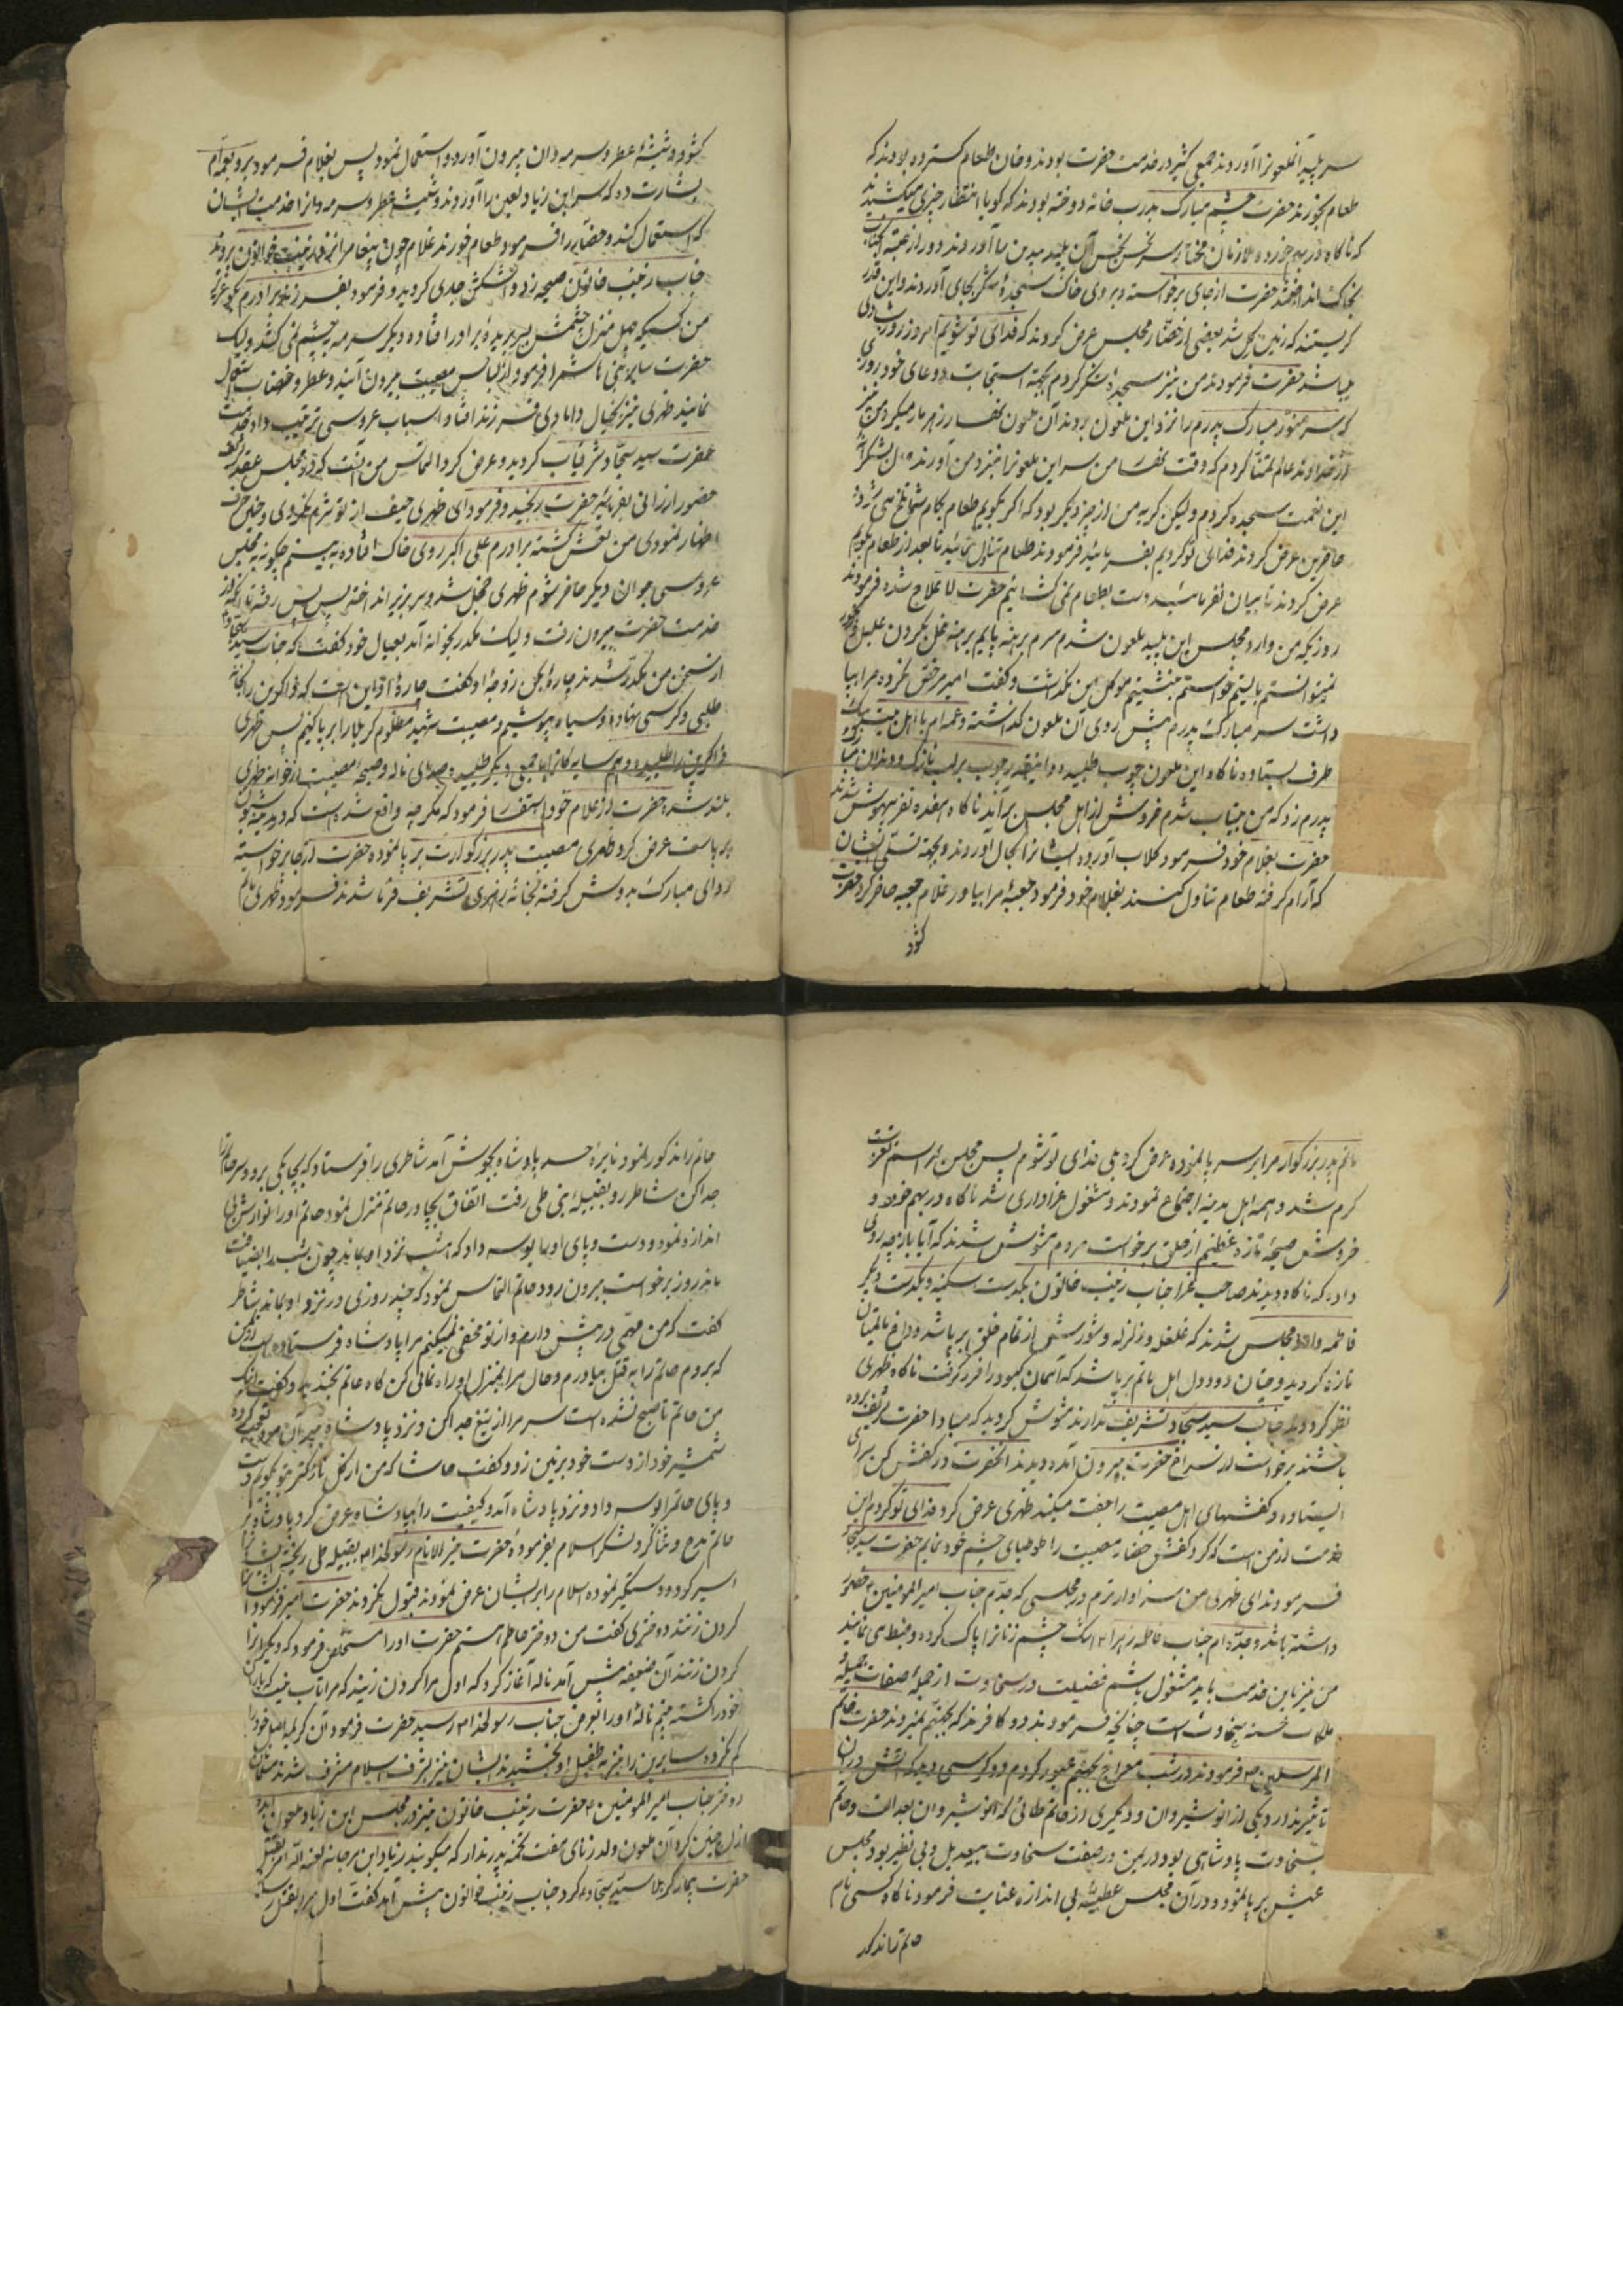 سر پلید آنملعونرا آوردند جمعی کثیر در خدمت حضرت بودند و خان طعام کسترده بودند که
طعام بخورند حضرت چشم مبارک بدرب خانه دوخته بودند که کویا انتظار چیزی میکشیدند
که ناکاه در بهم خورده ملازمان مختار سر نحس نجس آن پلید بیدین را آوردند و در از عتبه
بخاک انداختند حضرت از جای برخواسته و بروی خاک سجدهٔ شکر بجای آوردند و این قدر
کریستند که زمین کل شد بعضی از حضار مجلس عرض کردند که فدای تو شویم امروز روز شادی
میباشد حضرت فرمودند من نیز سجدهٔ شکر کردم بجهة استجابت دعای خود روزی
که سر منور مبارک پدرم را نزد این ملعون بردند آن ملعون نهار زهرمار میکرد من نیز
از خداوند عالم تمنا کردم که وقت نهار من سر این ملعونرا نیز نزد من آورند الآن بشکرانهٔ
این نعمت سجده کردم ولیکن کریه من از چیز دیکر بود که اکر بکویم طعام بکام شما تلخ می شود
حاضرین عرض کردند فدای تو کردیم بفرمائید فرمودند طعام تناول نمائید تا بعد از طعام بکویم
عرض کردند تا بیان نفرمائید دست بطعام نمی کشائیم حضرت لا علاج شده فرمودند
روزیکه من وارد مجلس این پلید ملعون شدم سرم برهنه پایم برهنه غل بکردن علیل و رنجور
نمیتوانستم بایستم خواستم بنشینم موکل من نکذاشت و کفت امیر مرخص نکرده مرا بپا
داشت سر مبارک پدرم پیش روی آن ملعون کذاشته و عمه‌ام با اهل بیت یک
طرف ایستاده ناکاه این ملعون چوب طلبیده و اینقدر چوب بر لب نازک و دندان مبارک
پدرم زد که من بیتاب شدم خروش از اهل مجلس برآمد ناکاه هفده نفر بیهوش شدند
حضرت بغلام خود فرمود کلاب آورده ایشانرا بحال آوردند و بجهة تسلی ایشان
که آرام کرفته طعام تناول کنند بغلام خود فرمود جعبهٔ مرا بیاور غلام جعبه حاضر کرد حضرت
کشود
کشود و شیشهٔ عطر و سرمه‌دان بیرون آورد و استعمال نمود پس بغلام فرمود برو بعمه‌ام
بشارت ده که سر ابن زیاد لعین را آوردند و شیشه عطر و سرمه‌دانرا خدمت ایشان
که استعمال کند و حضار را فرمود طعام خورند غلام چون پیغامرا نزد زینب خواتون برد
جناب زینب خاتون صیحه زد و اشکش جاری کردید و فرمود بفرزند برادرم بکو عزیز
من کسیکه چهل منزل چشمش بسر بریدهٔ برادر افتاده دیکر سرمه بچشم نمی کشد ولیک
حضرت سایر بنی هاشمرا فرمود از لباس مصیبت بیرون آیند و عطر و خضاب استعمال
نمایند ظهری نیز بخیال دامادی فرزند افتاد و اسباب عروسی ترتیب داد خدمت
حضرت سید سجاد شرفیاب کردید و عرض کرد التماس من آنست که در مجلس عقد
حضور ارزانی بفرمائید حضرت رنجید و فرمود ای ظهری حیف از تو شرم نکردی و چنین حرف
اظهار نمودی من نعش کشته برادرم علی اکبر روی خاک افتاده به بینم چکونه بمجلس
عروسی جوان دیکر حاضر شوم ظهری خجل شد و سر بزیر انداخته پس پس رفته تا آنکه از
خدمت حضرت بیرون رفت و لیک مکدر بخانه آمد بعیال خود کفت که جناب سید سجاد
از سخن من مکدر شدند چارهٔ بکن زوجهٔ او کفت چارهٔ او این است که ذاکرین را بخانه
طلبی و کرسی نهاده و سیاه بپوشیم و مصیبت شهید مظلوم کربلا را برپا کنیم پس ظهری
ذاکرین را طلبیده و همسایه‌کانرا با جمعی دیکر طلبیده و صدای ناله و صیحهٔ مصیبت از خانه ظهری
بلند شد حضرت از غلام خود استفسار فرمود که مکر چه واقع شده است که در مدینه شیون
برپاست عرض کرد ظهری مصیبت پدر بزرکوارت برپا نموده حضرت از جا برخواسته
ردای مبارک بدوش کرفته بخانهٔ ظهری تشریف فرما شدند فرمود ظهری ماتم
ماتم پدر بزرکوار مرا بر سر پا نموده عرض کرد بلی فدای تو شوم پس مجلس مراسم تعزیت
کرم شد و همه اهل مدینه اجتماع نمودند و مشغول عزاداری شد ناکاه در بهم خورد و
خروش صیحهٔ تازه عظیم از خلق برخواست مردم مشوش شدند که آیا باز چه روی
داده که ناکاه دیدند صاحب عزا جناب زینب خاتون یکدست سکینه و یکدست دیکر
فاطمه داخل مجلس شدند که غلغله و زلزله و شورشی از تمام خلق برپا شد و داغ ماتمیان
تازه کردید و چنان دود دل اهل ماتم برپا شد که آسمان کبود را فرو کرفت ناکاه ظهری
نظر کرد دید جناب سید سجاد تشریف ندارند مشوش کردید که مبادا حضرت تشریف برده
باشند برخواست از سراغ حضرت بیرون آمده دید آنحضرت در کفش کن سرای
ایستاده و کفشهای اهل مصیبت را جفت میکند ظهری عرض کرد فدای تو کردم این
خدمت از من است که کرد کفش حضار مصیبت را طوطیای چشم خود نمایم حضرت سید سجاد
فرمودند ای ظهری من سزاوارترم در مجلسی که جدم جناب امیر المومنین ع حضور
داشته باشد و جده‌ام جناب فاطمه زهرا ع اشک چشم زنانرا پاک کرده و ضبط می نمایند
من نیز باین خدمت باید مشغول باشم فضیلت در سخاوت از جملهٔ صفات جمیلهٔ
ملکات حسنه سخاوت است چنانچه فرمودند دو کافرند که بجهنم نمیروند حضرت خاتم
المرسلین ص فرمودند در شب معراج بجهنم عبور کردم دو کرسی دیدم که آتش در آن
تاثیر ندارد یکی از انوشیروان و دیکری از حاتم طائی که انوشیروان بعدالت و حاتم
بسخاوت پادشاهی بود در یمن در صفت سخاوت بیبدیل و بی نظیر بود مجلس
عیش برپا نمود و در آن مجلس عطیهٔ بی اندازه عنایت فرمود ناکاه کسی نام
حاتم را مذکور
حاتم را مذکور نمود نایرهٔ حسد پادشاه بجوش آمد شاطری را فرستاد که بچابکی برود سر حاتم را
جدا کن شاطر رو بقبیلهٔ بنی طی رفت اتفاق بیجا در حاتم منزل نمود حاتم او را نوازش بی
اندازه نمود و دست و پای او را بوسه داد که امشب نزد او بماند چون شب را بضیافت
ماند روز برخواست بیرون رود حاتم التماس نمود که چند روزی در نزد او بماند شاطر
کفت که من مهمی در پیش دارم و از تو مخفی نمیکنم مرا پادشاه فرستاده است
که بروم حاتم را به قتل بیاورم و حال مرا بمنزل او راه نمائی کن کاه حاتم بخندید و کفت اینک
من حاتم تا صبح نشده است سر مرا از تیغ جدا کن و نزد پادشاه ببر آن مرد تعجب کرده
شمشیر خود از دست خود بر زمین زد و کفت حاشا که من از کل نازکتر بتو بکویم دست
و پای حاتمرا بوسه داد و نزد پادشاه آمد و کیفیت را بپادشاه عرض کرد پادشاه بر
حاتم مدح و ثنا کرد لشکر اسلام بفرمودهٔ حضرت خیر الانام رسولخدا ص بقبیله طی ریخته ایشانرا
اسیر کرد و دستکیر نموده اسلام را بر ایشان عرض نمودند قبول نکردند حضرت امر فرمود
کردن زنند دختری کفت من دختر حاتم استم حضرت او را مستخلص فرمود که دیکرانرا
کردن زنند آن ضعیفه پیش آمد ناله آغاز کرد که اول مرا کردن زنید که مرا تاب نیست که یاران
خود را کشته بینم نالهٔ او را بعرض جناب رسولخدا ص رسید حضرت فرمود آن کریمه اصل خود را
کم نکرده سایرین را نیز به طفیل او بخشیدند ایشان نیز بشرف اسلام مشرف شدند
دختر جناب امیر المومنین ع حضرت زینب خاتون نیز در مجلس ابن زیاد ملعون
چنین کرد آن ملعون ولد زنای هفت تخمه پدر ندار که میکویند زیاد ابن مرجانه لعنه الله امر بقتل
حضرت بیمار کربلا سید سجاد ع کرد جناب زینب خواتون پیش آمد کفت اول مرا بقتل